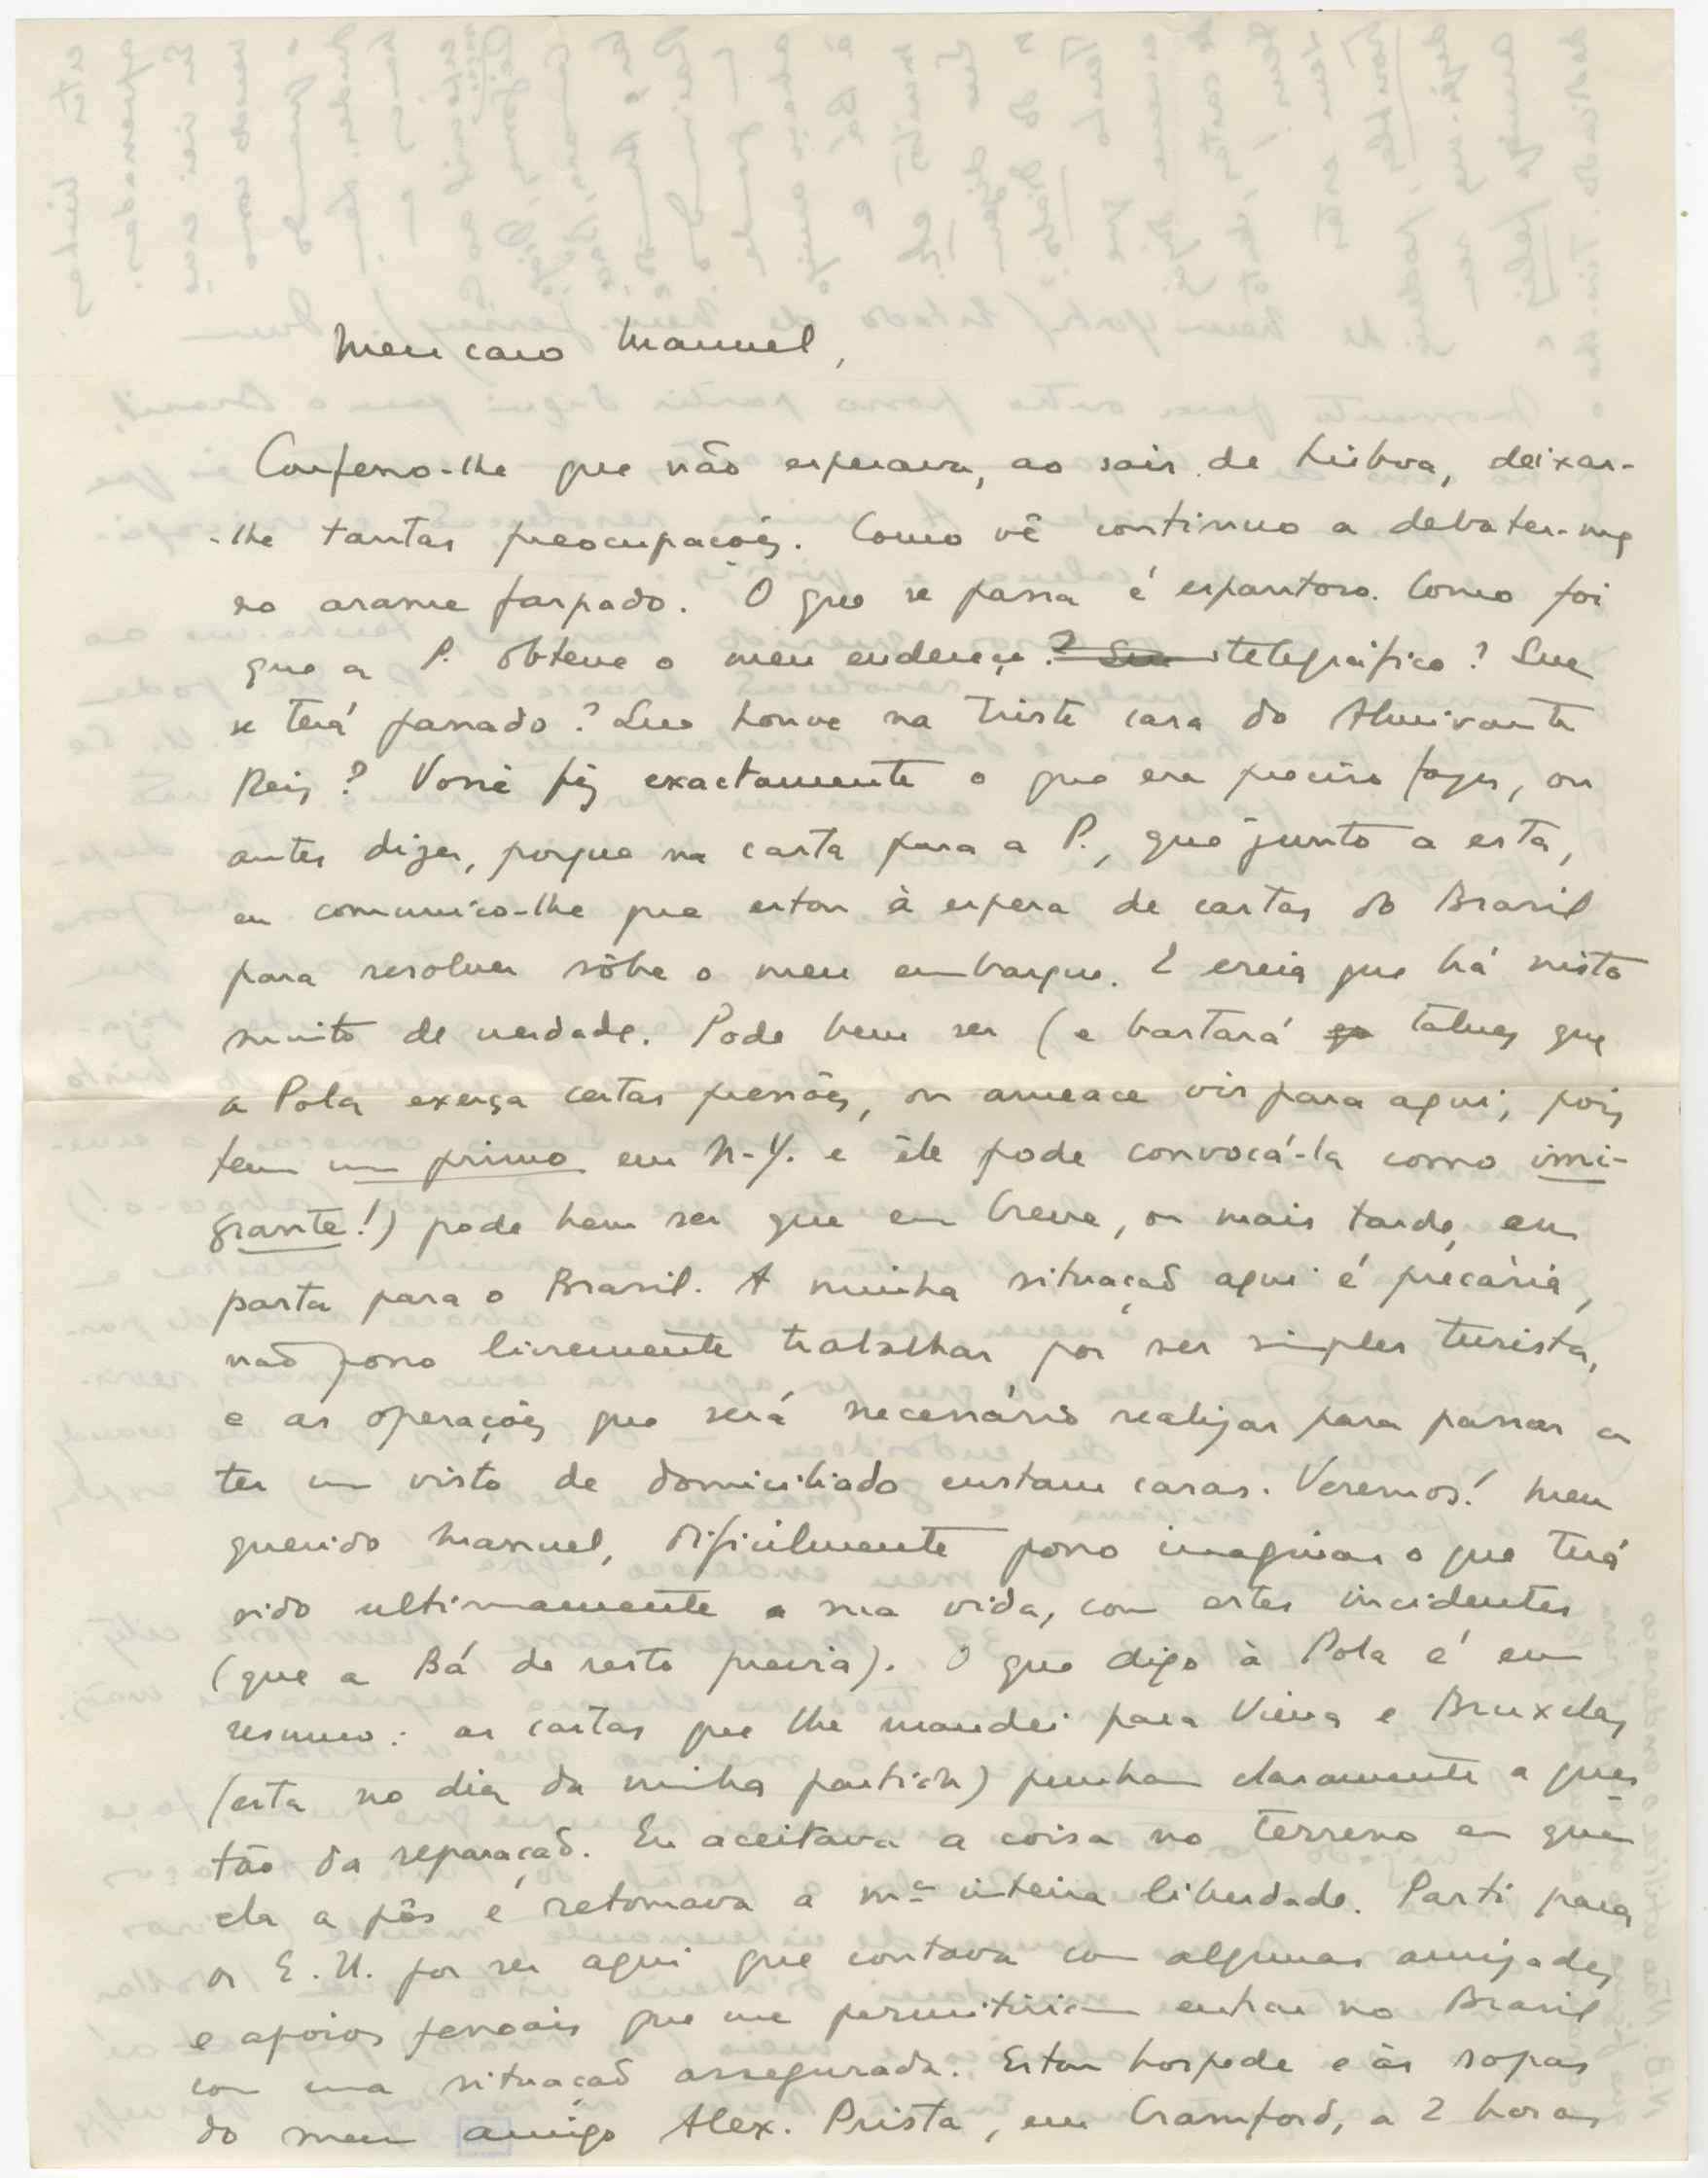 Meu caro Manuel,
Confesso-lhe que não esperava, ao sair de Lisboa, deixar-
-lhe tantas preocupações. Como vê continuo a debater-me
no arame farpado. O que se passa é espantoso. Como foi
que a P. obteve o meu endereço telegráfico? Que
se terá passado? Que houve na triste casa do Almirante
Reis? Você fêz exactamente o que era preciso fazer, ou
antes dizer, porque na carta para a P., que junto a esta,
eu comunico-lhe que estou à espera de cartas do Brasil
para resolver sôbre o meu embarque. E creia que há nisto
muito de verdade. Pode bem ser (e bastará talvez que
a Pola exerça certas pressões, ou ameace vir para aqui, pois
tem um primo em N-Y. e êle pode convocá-la como imi-
grante!) pode bem ser que em breve, ou mais tarde, eu
parta para o Brasil. A minha situação aqui é precária,
não posso livremente trabalhar por ser simples turista,
e as operações que será necessário realizar para passar a
ter um visto de domiciliado custam caras. Veremos! Meu
querido Manuel, dificilmente posso imaginar o que terá
sido ultimamente a sua vida, com estes incidentes
(que a Bá de resto previa). O que digo à Pola é em
resumo: as cartas que lhe mandei para Viena e Bruxelas
(esta no dia da minha partida) punham claramente a ques-
tão da separação. Eu aceitava a coisa no terreno em que
ela a pôs e retomava a mª inteira liberdade. Parti para
os E.U. por ser aqui que contava com algumas amizades
e apoios pessoais que me permitiriam entrar no Brasil
com uma situação assegurada. Estou hospede e às sopas
do meu amigo Alex. Prista, em Cranford, a 2 horas